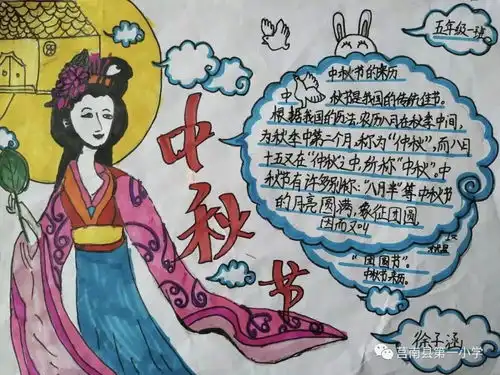 五年级一班
中秋节
中秋节的来历
中 秋节是我国的传统佳节。
根据我国的历法,农历八月在秋季中间,
为秋季中第二个月,称为“仲秋”,而八月
十五又在“仲秋”之中,所称“中秋”。中
秋节有许多别称:“八月半”等,中秋节
的月亮圆满,象征团圆,
因而又叫
“团圆节”。
中秋节来历。
徐子涵
莒南县第一小学